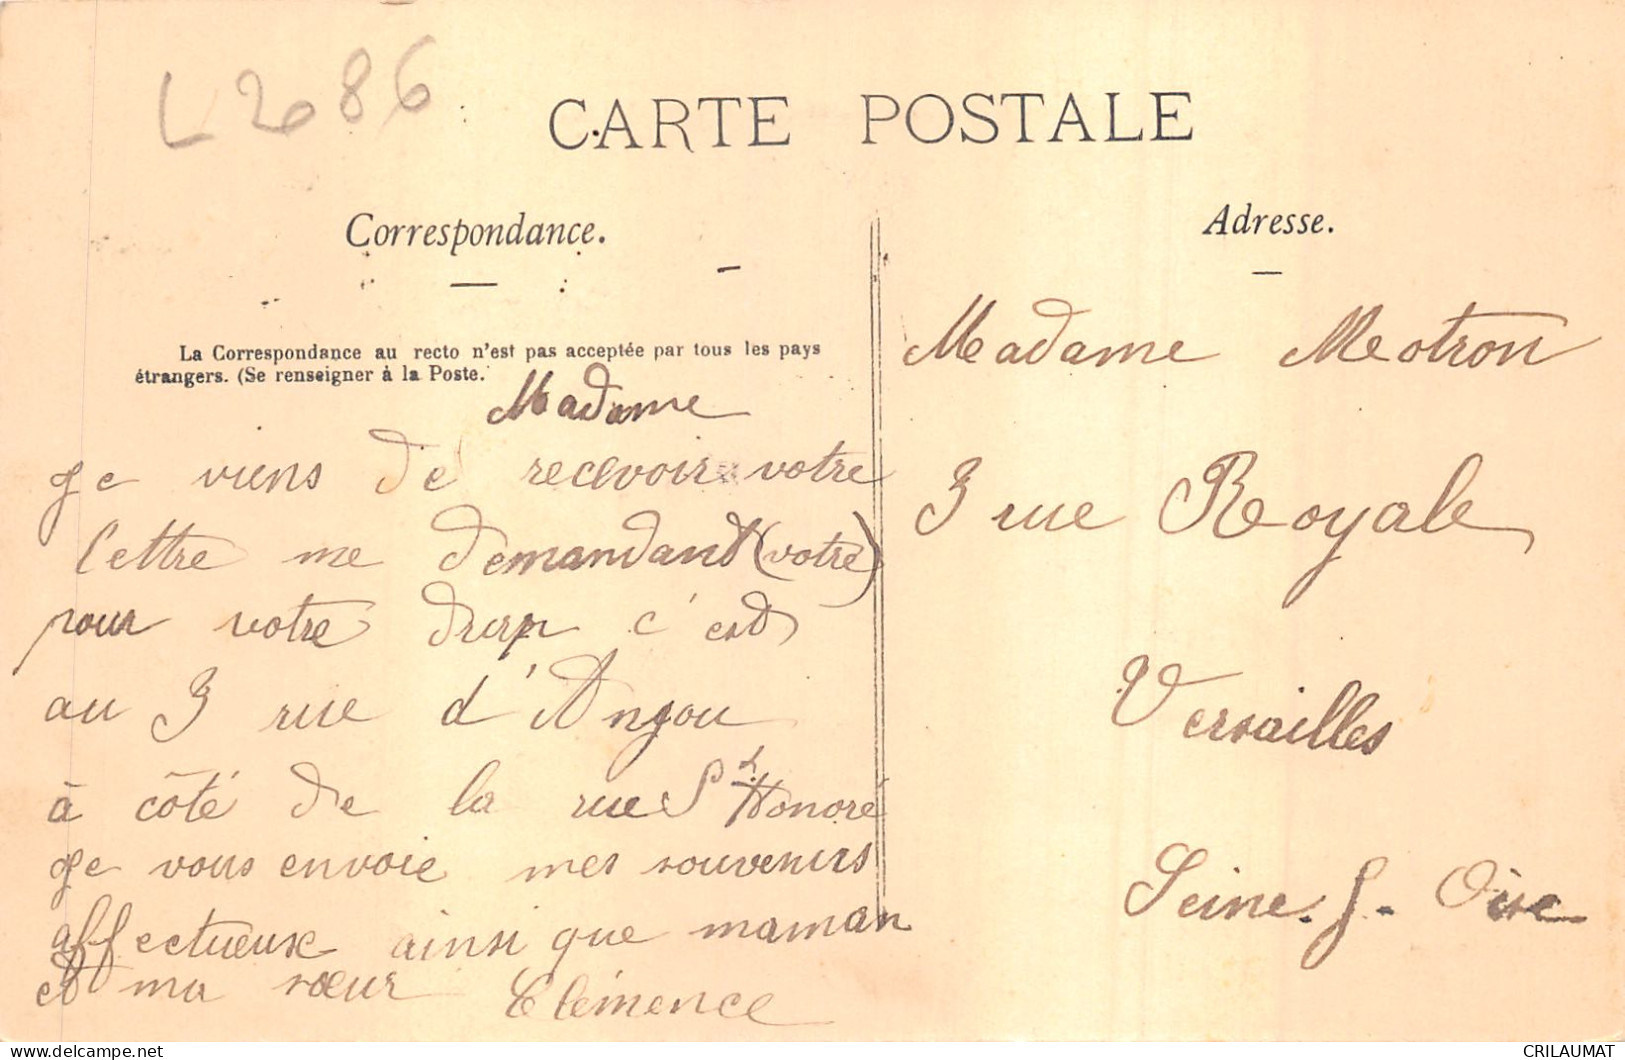 L2086
CARTE POSTALE
Correspondance.
La Correspondance au recto n'est pas acceptée par tous les pays
étrangers. (Se renseigner à la Poste.
Madame
Je viens de recevoir votre
lettre me demandant (votre)
pour votre drap c'est
au 3 rue d'Anjou
à côté de la rue St Honoré
Je vous envoie mes souvenirs
affectueux ainsi que maman
et ma sœur Clémence
Adresse.
Madame Motron
3 rue Royale
Versailles
Seine-&-Oise
CRILAUMAT